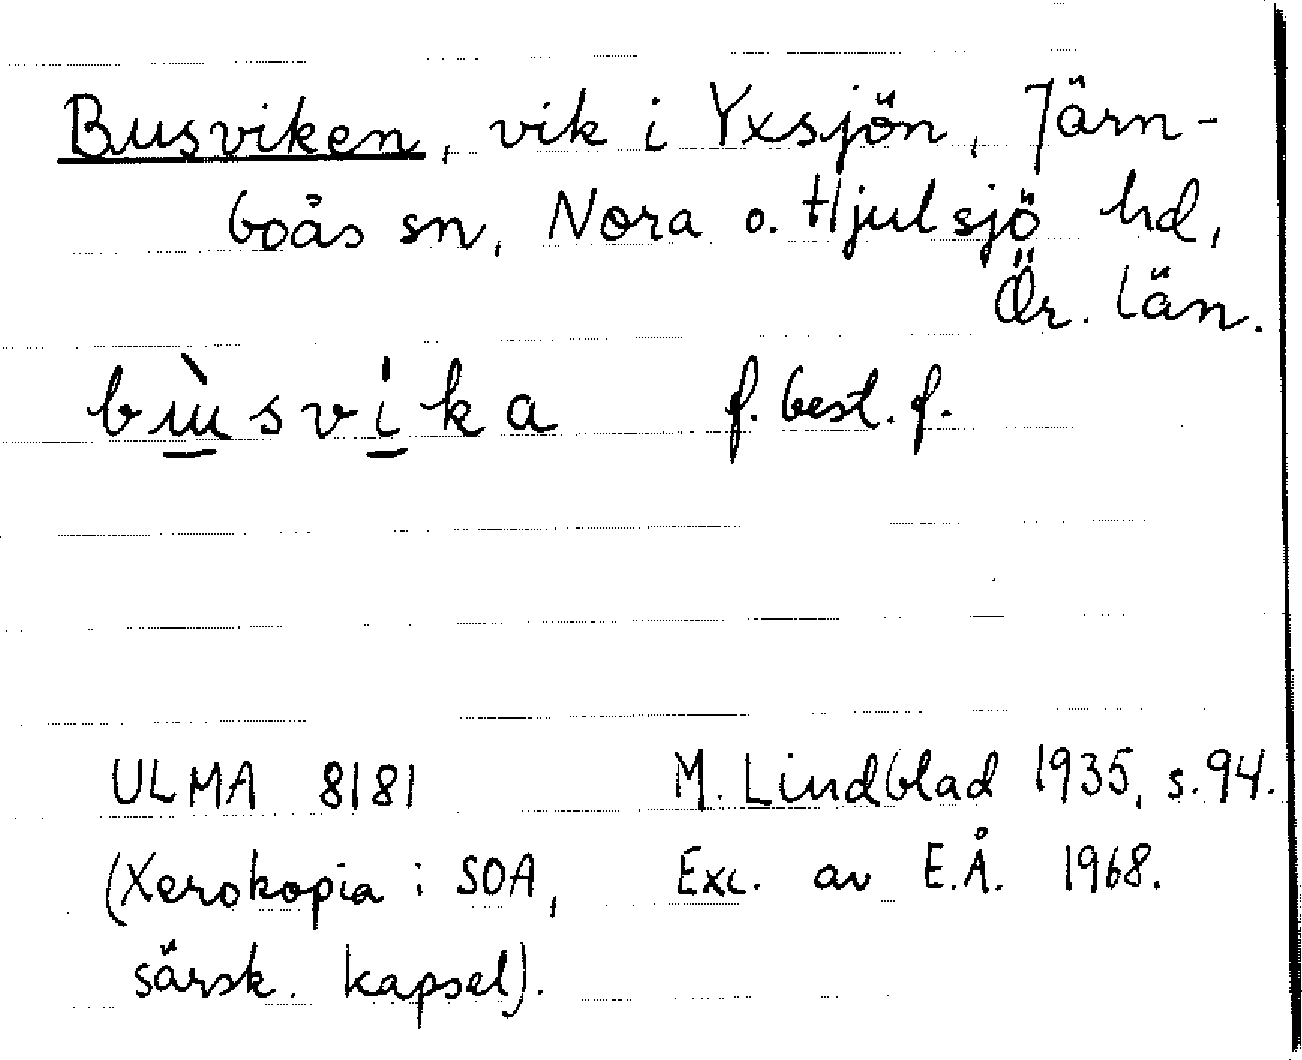 Busviken, vik i Yxsjön, Järn-
boås sn, Nora o. Hjulsjö hd,
Ör. län.
bùsvi̍ka f. best. f.
ULMA 8181 M. Lindblad 1935, s. 94.
(Xerokopia i SOA, Exc. av E.Å. 1968.
särsk. kapsel).